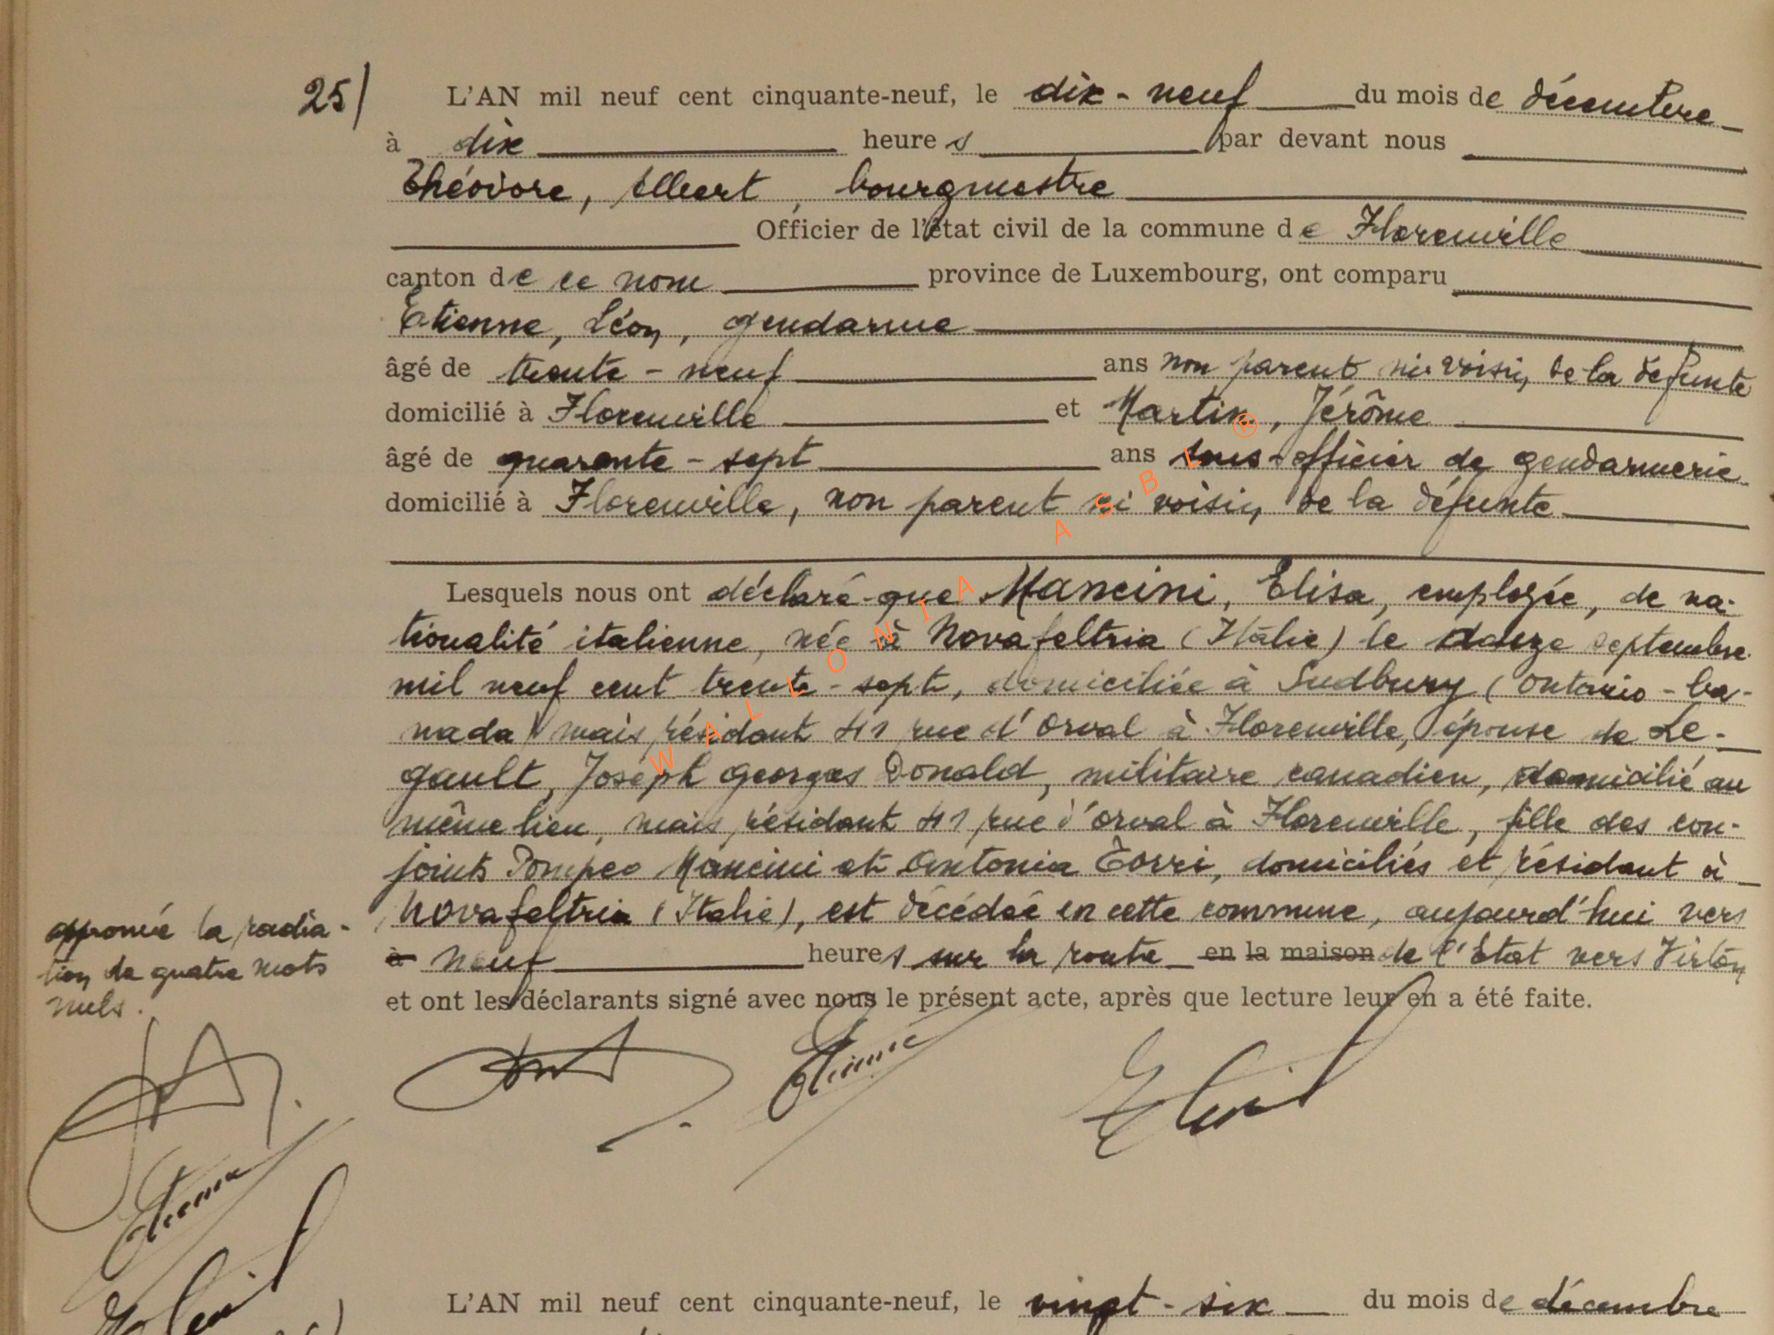 25/ L'AN mil neuf cent cinquante-neuf, le dix-neuf du mois de décembre
à dix heures par devant nous
Théodore, Albert, bourgmestre
Officier de l'état civil de la commune de Florenville
canton de ce nom province de Luxembourg, ont comparu
Etienne, Léon, gendarme
âgé de trente-neuf ans non parent ni voisin de la défunte
domicilié à Florenville et Martin, Jérôme
âgé de quarante-sept ans sous-officier de gendarmerie
domicilié à Florenville, non parent ni voisin de la défunte
Lesquels nous ont déclaré que Mancini, Elisa, employée, de na-
tionalité italienne, née à Novafeltria (Italie) le douze septembre
mil neuf cent trente-sept, domiciliée à Sudbury (Ontario-Ca-
nada) mais résidant 41 rue d'Orval à Florenville, épouse de Le-
gault, Joseph Georges Donald, militaire canadien, domicilié au
même lieu, mais résidant 41 rue d'Orval à Florenville, fille des con-
joints Pompeo Mancini et Antonia Torri, domiciliés et résidant à
Novafeltria (Italie), est décédée en cette commune, aujourd'hui vers
à neuf heures sur la route en la maison de l'Etat vers Virton
et ont les déclarants signé avec nous le présent acte, après que lecture leur en a été faite.
approuvé la radia-
tion de quatre mots
nuls.
Etienne
Etienne
WALLONIA ASBL ®
L'AN mil neuf cent cinquante-neuf, le vingt-six du mois de décembre